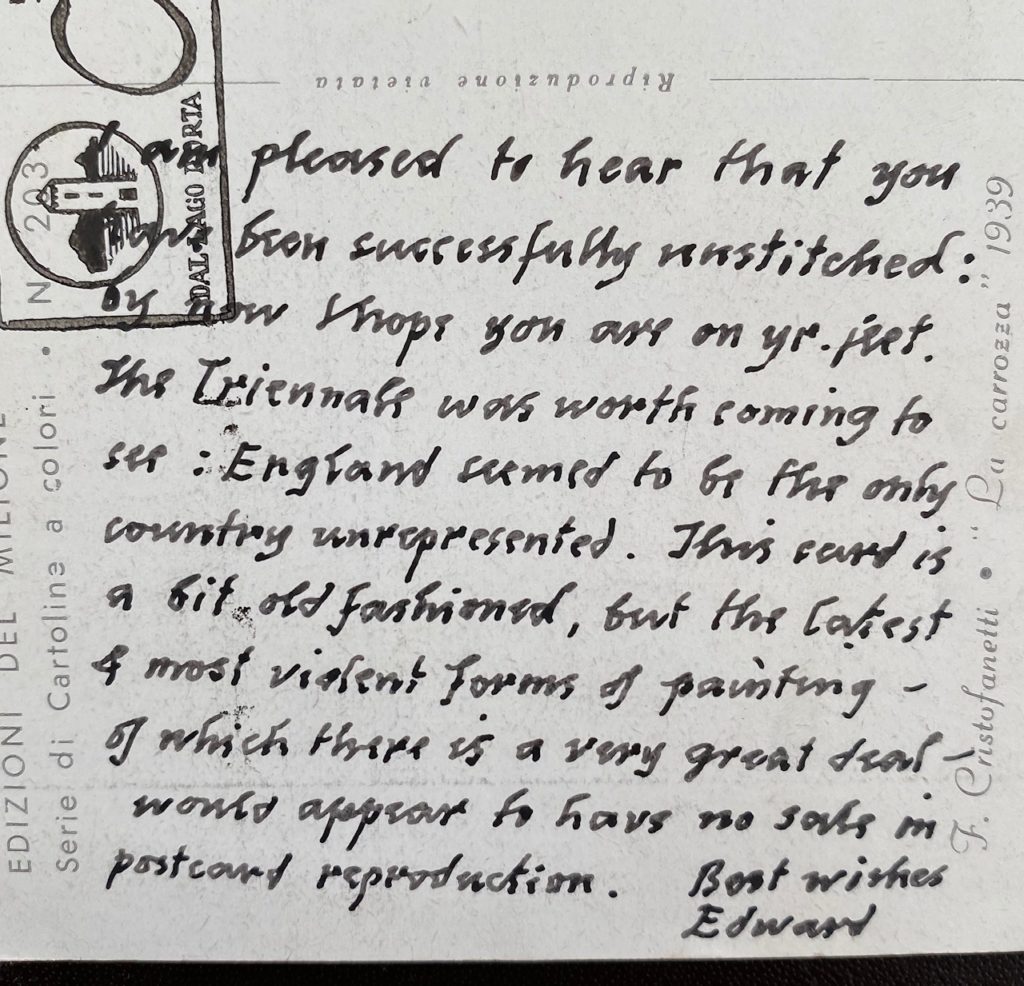 Riproduzione vietata
DAL LAGO PORTA
I am pleased to hear that you
have been successfully unstitched:
by now I hope you are on yr. feet.
The Triennale was worth coming to
see : England seemed to be the only
country unrepresented. This card is
a bit old fashioned, but the latest
& most violent forms of painting –
of which there is a very great deal –
would appear to have no sale in
postcard reproduction. Best wishes
Edward
EDIZIONI DEL MILIONE
Serie di Cartoline a colori • N. 203
F. Cristofanetti • "La carrozza" 1939